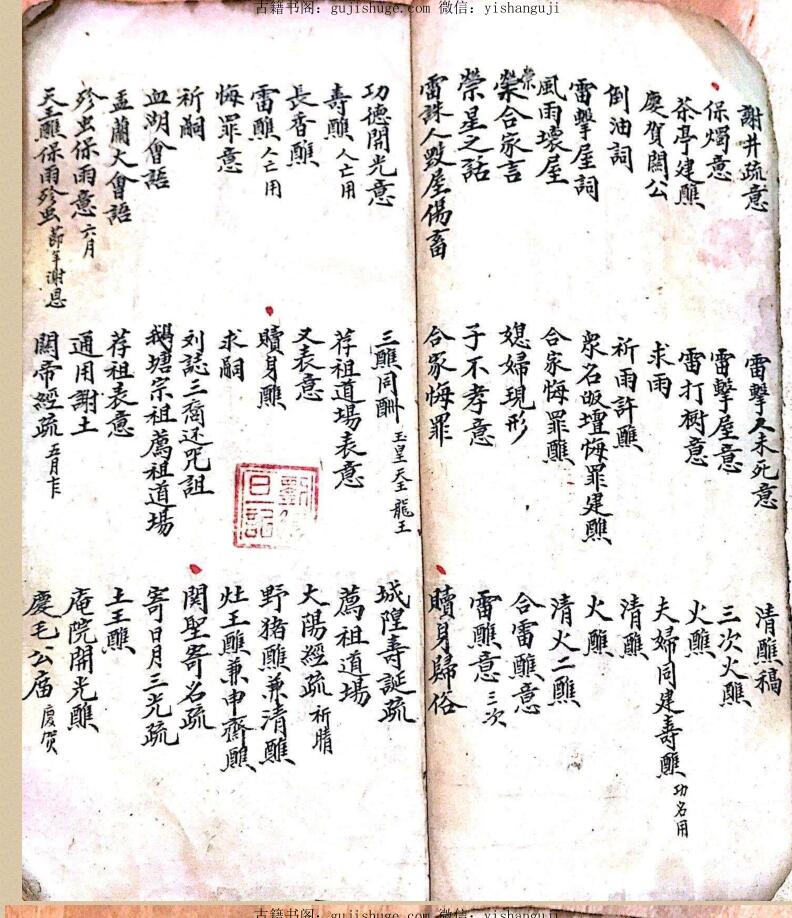 古籍书阁：gujishuge.com 微信：yishanguji
謝井疏意
保燭意
茶亭建醮
慶賀關公
倒油詞
雷擊屋詞
風雨壞屋
禜合家言
禜
禜星之話
雷誅人毀屋傷畜
雷擊人未死意
雷擊屋意
雷打樹意
求雨
祈雨許醮
眾名皈壇悔罪建醮
合家悔罪醮
媳婦現形
子不孝意
合家悔罪
清醮稿
三次火醮
火醮
夫婦同建壽醮 功名用
清醮
火醮
清火二醮
合雷醮意
雷醮意 三次
贖身歸俗
功德開光意
壽醮 人亡用
長香醮
雷醮 人亡用
悔罪意
祈嗣
血湖會語
盂蘭大會語
殄虫保雨意 六月
天王醮保雨殄虫 節年謝恩
三醮同酧 玉皇 天王 龍王
荐祖道場表意
又表意
贖身醮
求嗣
刘誌三裔还咒詛
鵝塘宗祖薦祖道場
荐祖表意
通用謝土
關帝經疏 五月十
城隍壽誕疏
薦祖道場
大陽經疏 祈晴
野猪醮兼清醮
灶王醮兼申齋醮
関聖寄名疏
寄日月三光疏
土王醮
庵院開光醮
慶毛公庙 慶賀
古籍书阁：gujishuge.com 微信：yishanguji